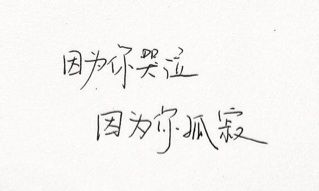 因为你哭泣
因为你孤寂